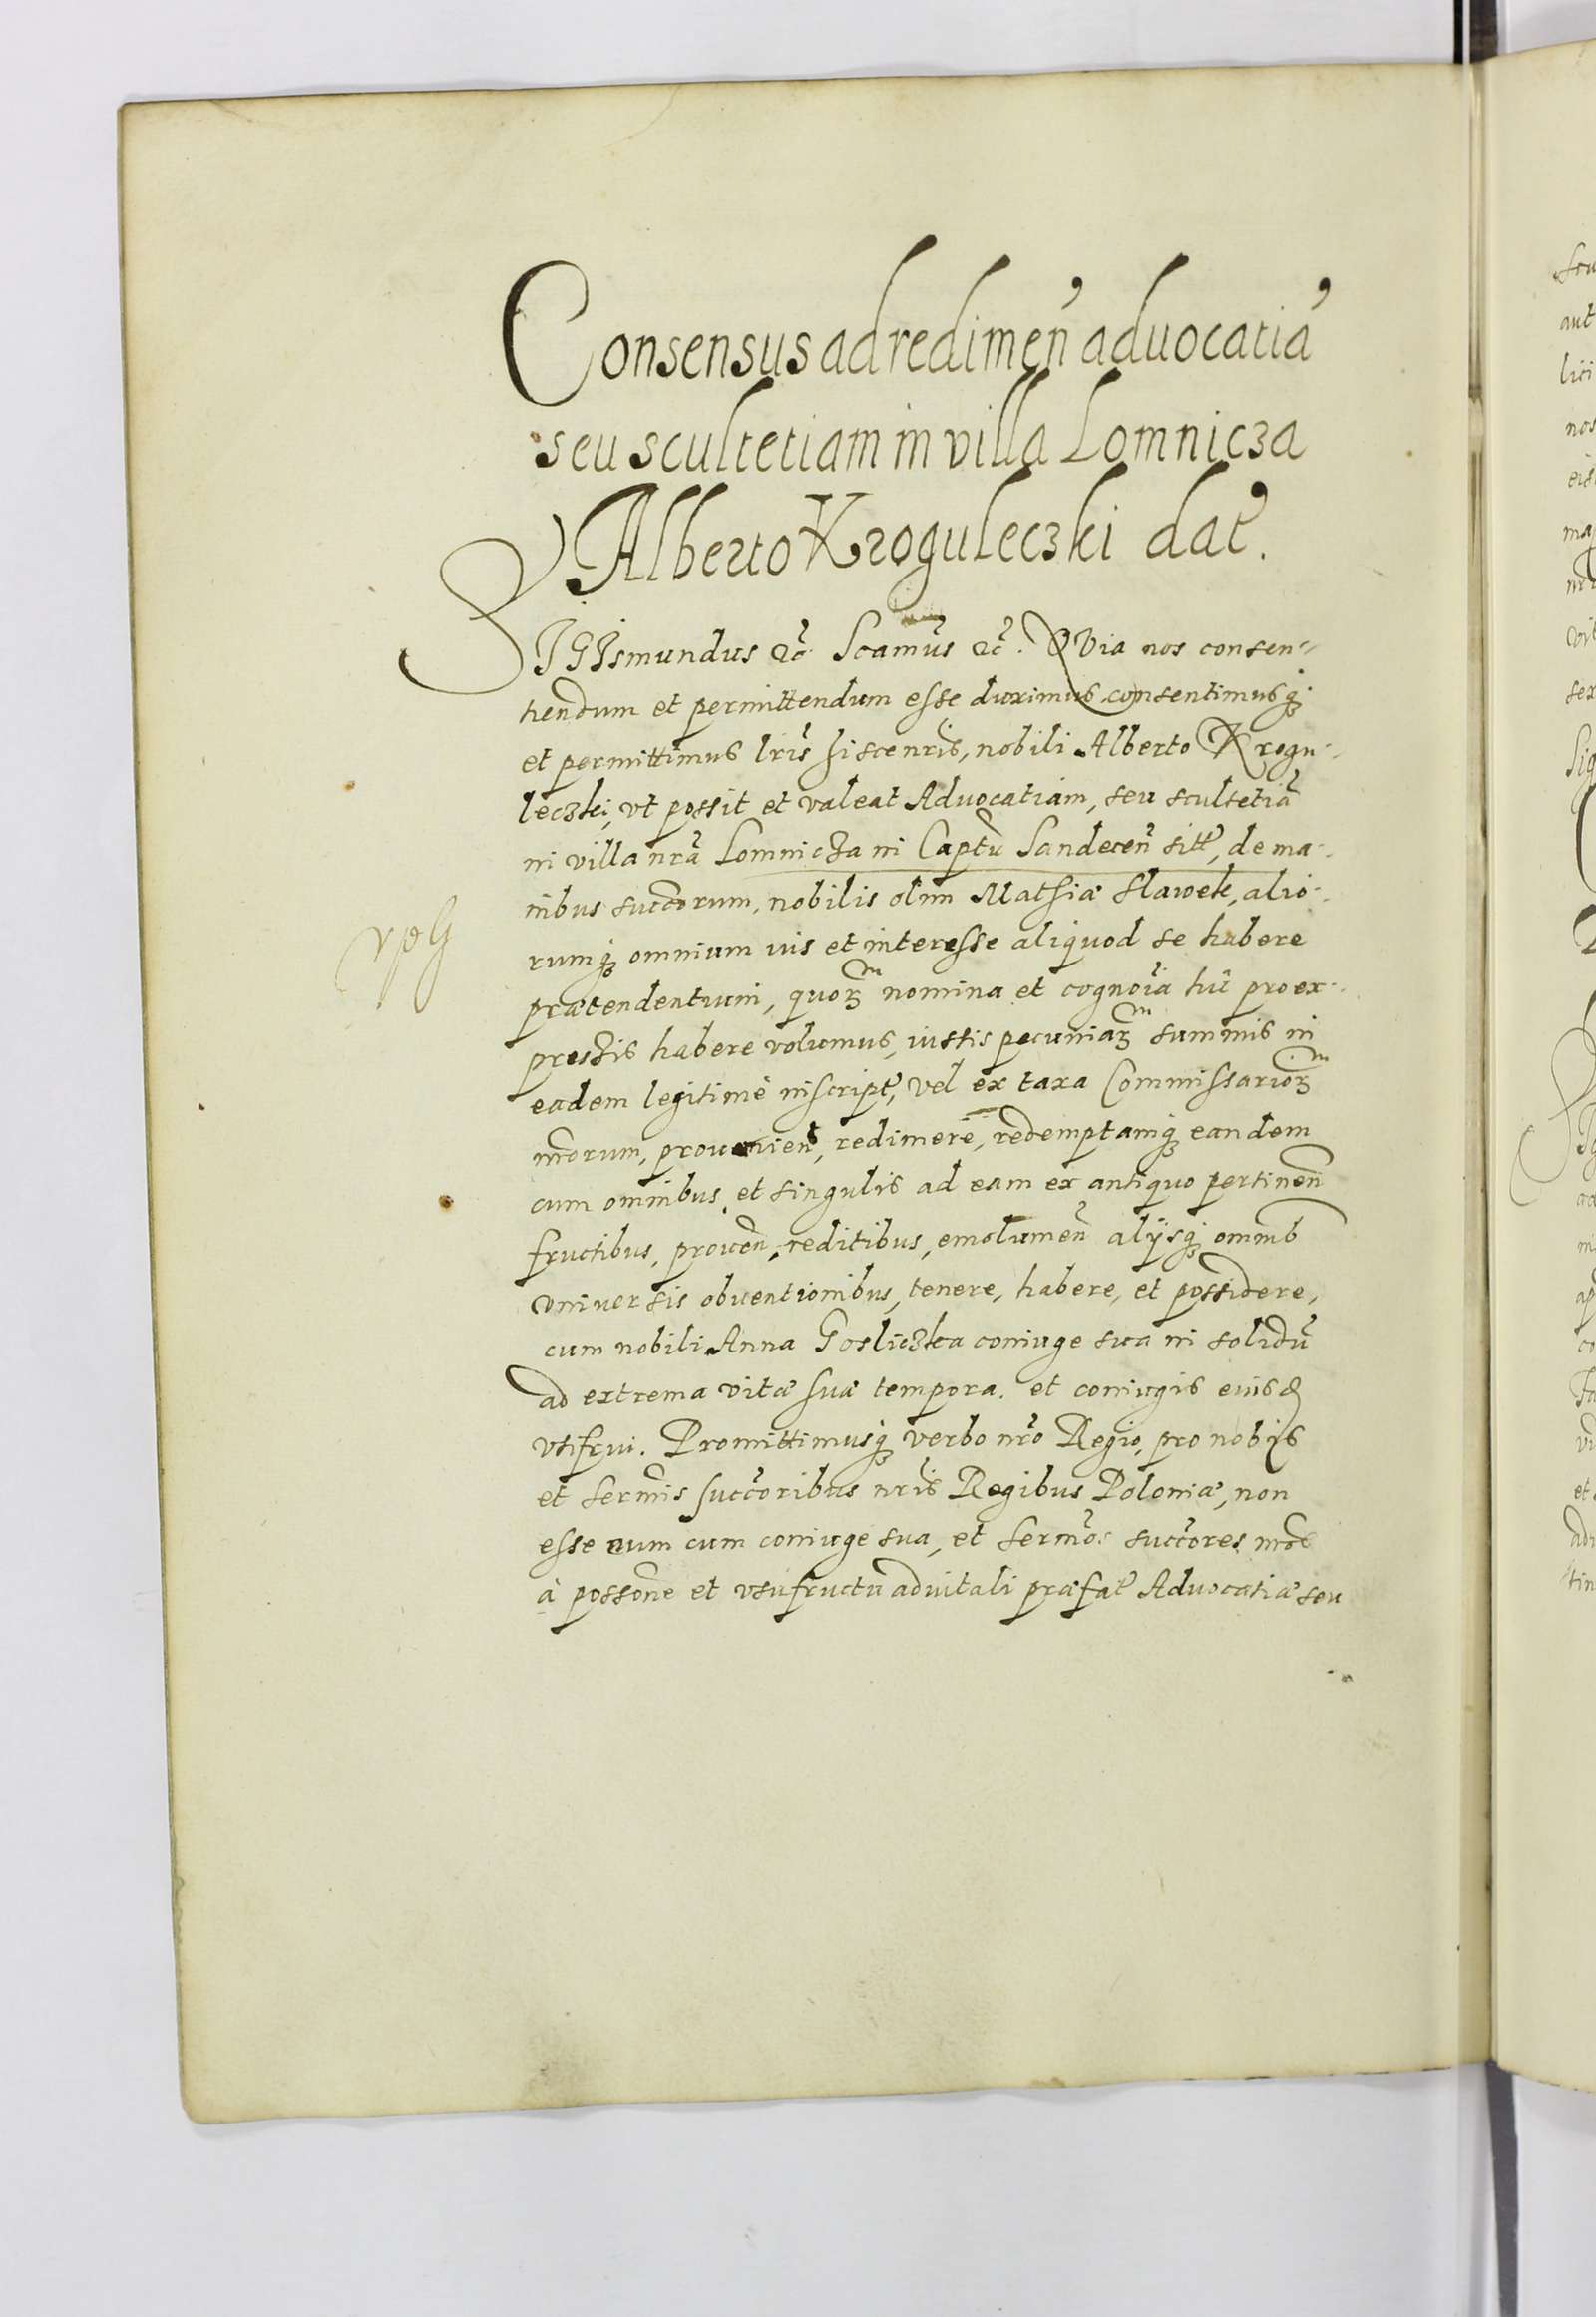 Consensus ad redimen̄ aduocatiā
seu scultetiam in villa Lomnicza
Alberto Kroguleczki dat̄.
SIGIsmundus &c̄. Scamūs &c̄. QVia nos consen-
tiendum et permittendum esse duximus consentimusq̄
et permittimus lrīs hisce nrīs, nobili Alberto Krogu-
leczki, vt possit et valeat Aduocatiam, seu scultetiā
in villa nrā Lomnicza in Capt̄u Sandecen̄ sitt̄, de ma-
nibus succorum, nobilis olim Mathiæ Slawek, alio-
rumq̄ omnium ius et interesse aliquod se habere
prætendentium, quoꝝm nomina et cognoīa hīc pro ex-
pressis habere volumus, iustis pecuniaꝝm summis in
eadem legitimè inscript̄, vel ex taxa Commissarioꝝm
nrōrum, prouenien̄, redimere, redemptamq̄ eandem
cum omnibus et singulis ad eam ex antiquo pertinen̄
fructibus, prouen̄, reditibus, emolumen̄ alijsq̄ omnib
vniuersis obuentionibus, tenere, habere, et possidere,
cum nobili Anna Gosliczka coniuge sua in solidū
ad extrema vitæ suæ tempora. et coniugis eiusd
vtifrui. Promittimusq̄ verbo nrō Regio, pro nobis
et sermīs succoribus nrīs Regibus Poloniæ, non
esse eum cum coniuge sua, et sermōs succores nrōs
à possōne et vsufructu aduitali præfat̄ Aduocatiæ seu